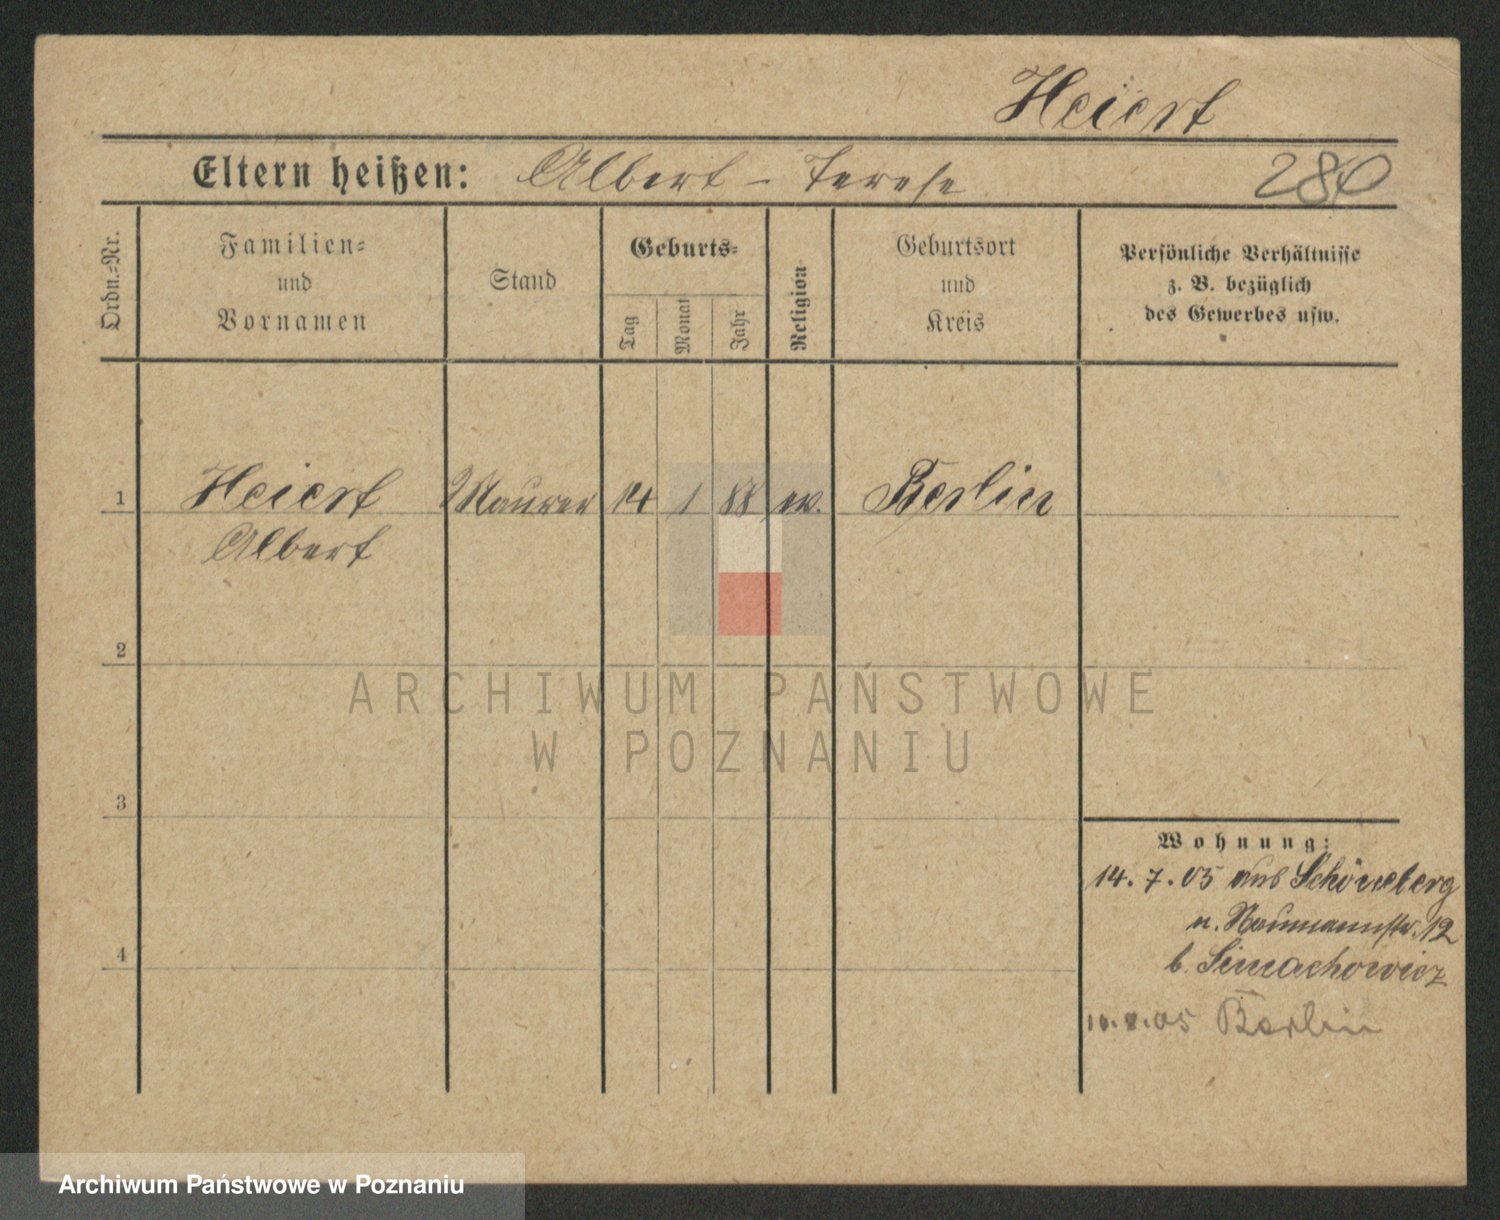 Heiert
Eltern heißen: Albert - Terese 280
Ordn.=Nr.
Familien=
und
Vornamen
Stand
Geburts=
Tag
Monat
Jahr
Religion
Geburtsort
und
Kreis
Persönliche Verhältnisse
z. B. bezüglich
des Gewerbes usw.
1 Heiert Maurer 14 1 88 ev. Berlin
Albert
2
3
4
Wohnung:
14.7.05 aus Schöneberg
n. Naumannstr. 12
b. Simachowicz
10.8.05 Berlin
ARCHIWUM PAŃSTWOWE
W POZNANIU
Archiwum Państwowe w Poznaniu